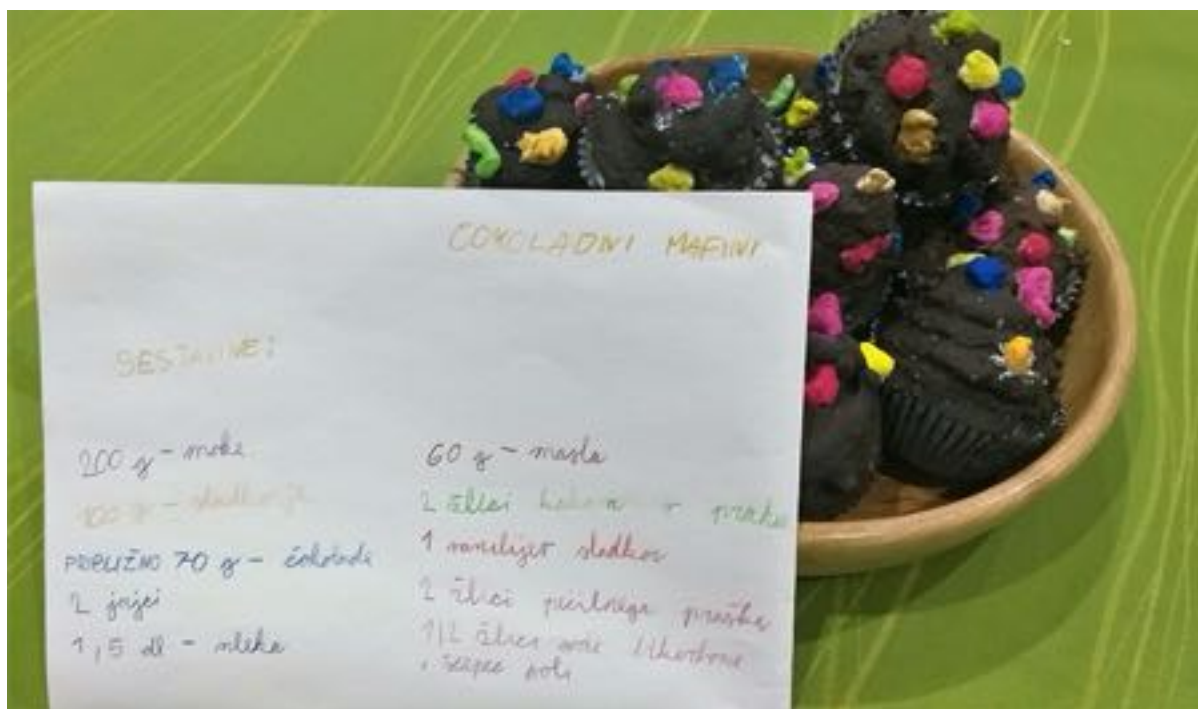 ČOKOLADNI MAFINI
SESTAVINE:
200 g - moke
100 g - sladkorja
PRIBLIŽNO 70 g - čokolade
2 jajci
1,5 dl - mleka
60 g - masla
2 žlici kakava v prahu
1 vanilijev sladkor
2 žlici pecilnega praška
1/2 žlice sode bikarbone
, ščepec soli